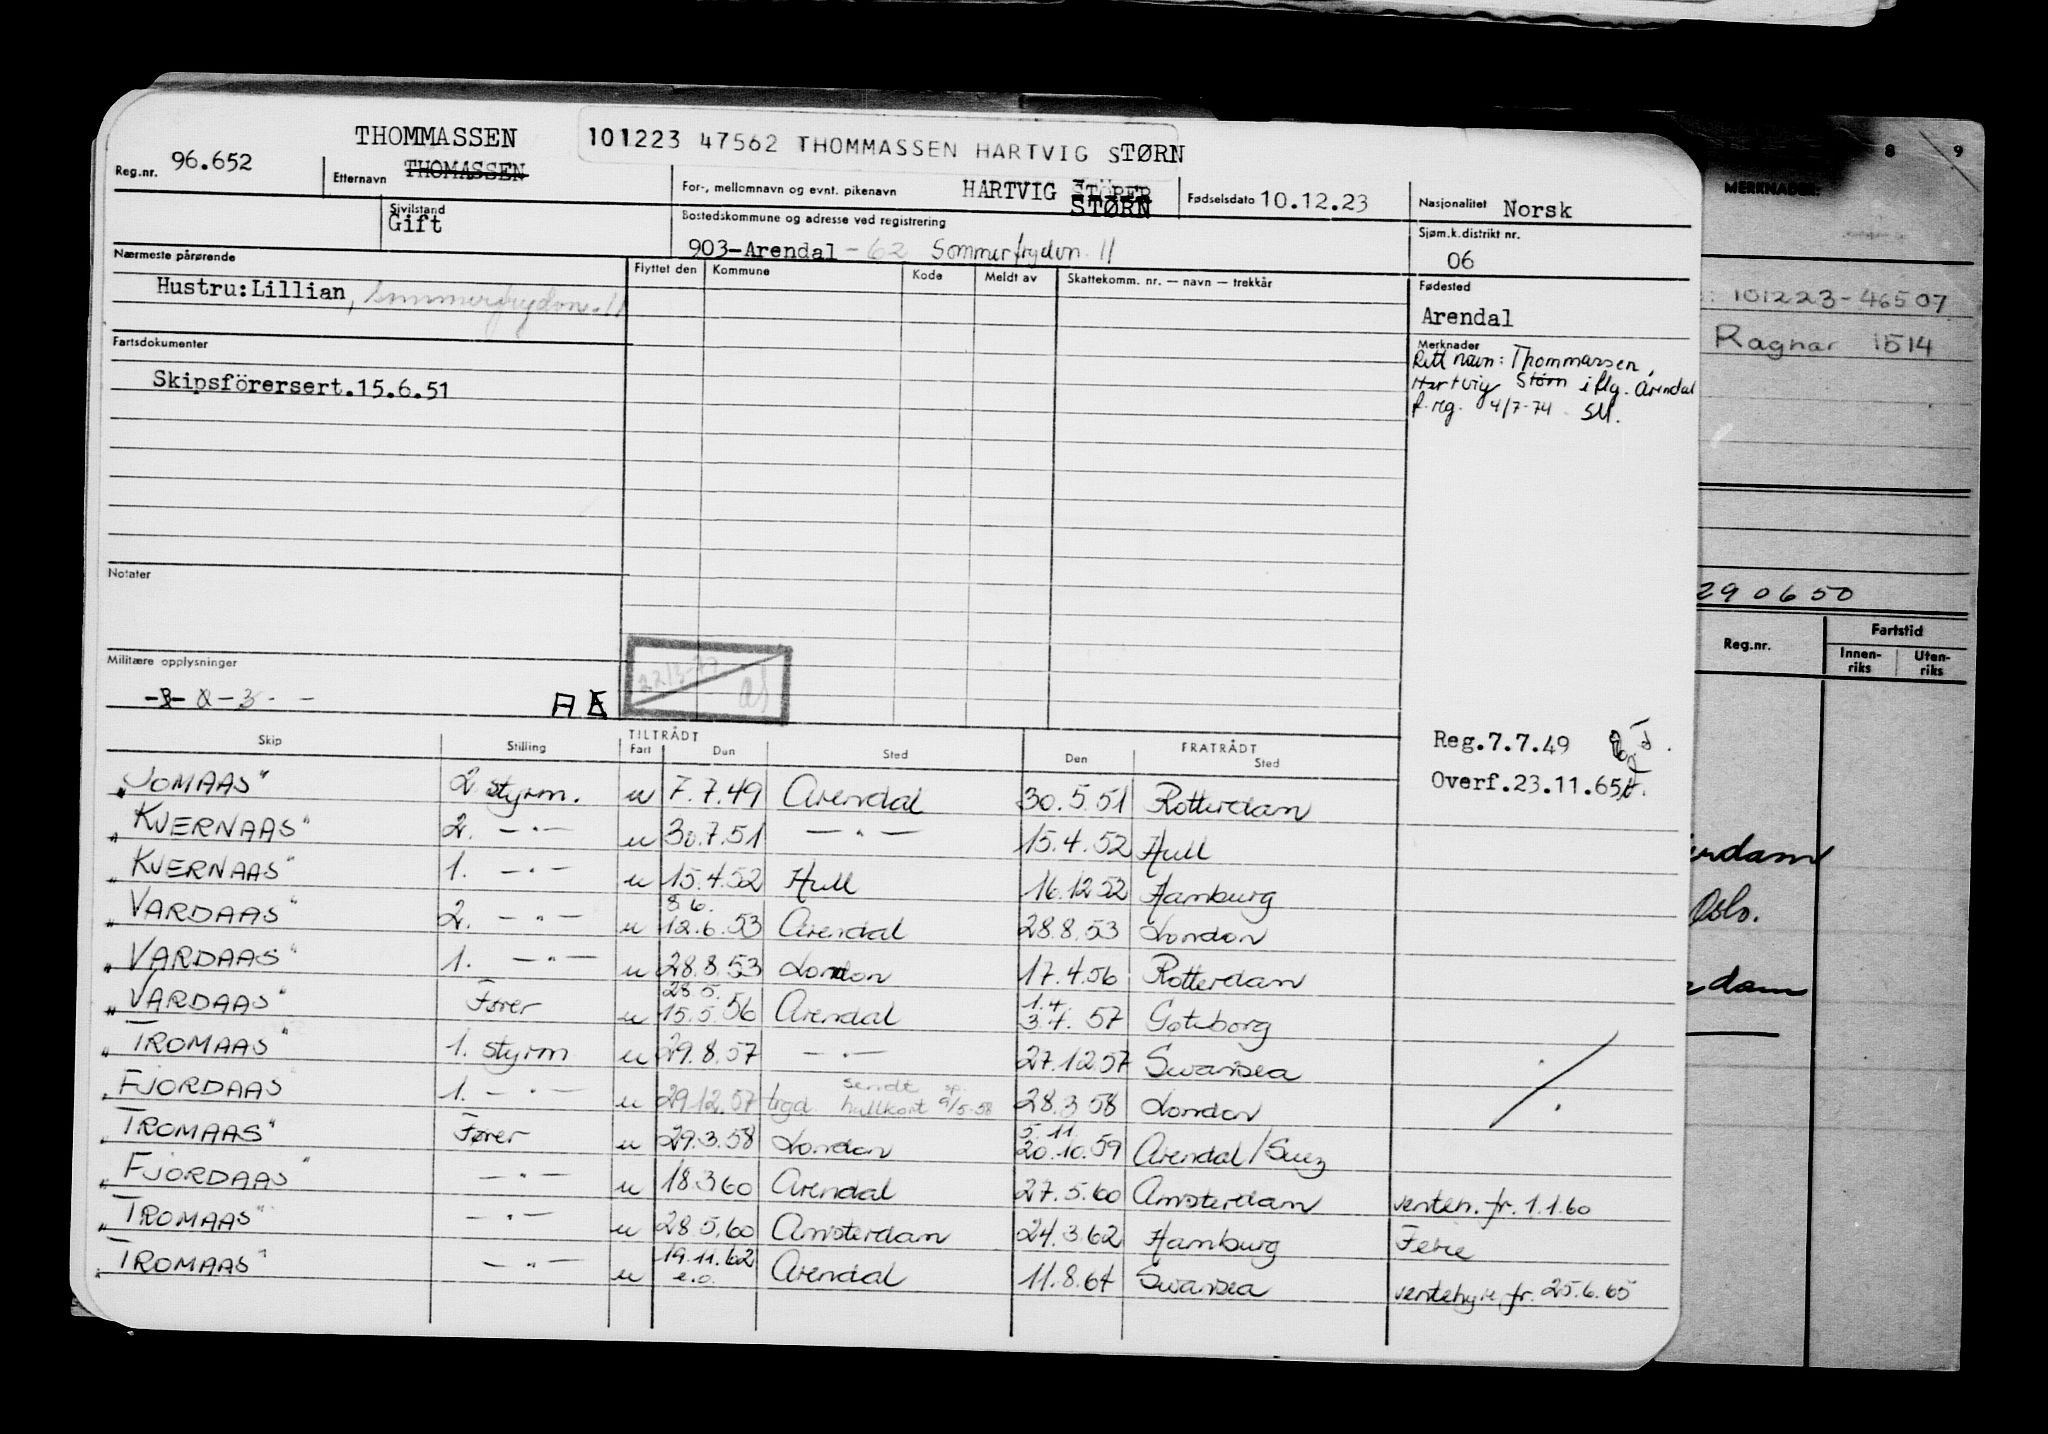 THOMMASSEN
101223 47562 THOMMASSEN HARTVIG STØRN
Reg.nr. 96.652
Etternavn THOMASSEN
For-, mellomnavn og evnt. pikenavn HARTVIG STÖRER
STØRN
Fødselsdato 10.12.23
Nasjonalitet Norsk
Sivilstand
Gift
Bostedskommune og adresse ved registrering
903-Arendal - 62 Sommerfrydvn. 11
Sjøm.k.distrikt nr.
06
Nærmeste pårørende
Hustru: Lillian,
Flyttet den Kommune Kode Meldt av Skattekomm. nr. — navn — trekkår
Fødested
Arendal
Fartsdokumenter
Skipsförersert.15.6.51
Merknader
Rett navn: Thommassen,
Hartvig Störn iflg. Arendal
f.reg. 4/7-74 SM.
Notater
Militære opplysninger
Reg.7.7.49
Overf.23.11.65
Skip Stilling TILTRÅDT FRATRÅDT
Fart Den Sted Den Sted
"JOMAAS" 2 styrm. u 7.7.49 Arendal 30.5.51 Rotterdam
"KVERNAAS" 2. -"- u 30.7.51 -"- 15.4.52 Hull
"KVERNAAS" 1. -"- u 15.4.52 Hull 16.12.52 Hamburg
"VARDAAS" 2. -"- u 8 6. 12.6.53 Arendal 28.8.53 London
"VARDAAS" 1. -"- u 28.8.53 London 17.4.56 Rotterdam
"VARDAAS" Fører u 28.5. 15.5.56 Arendal 1.4. 3.4.57 Gøteborg
"TROMAAS" 1. styrm u 29.8.57 -"- 27.12.57 Swansea
"FJORDAAS 1. -"- u 29.12.57 sendt hullkort 9/5-58 28.3.58 London
"TROMAAS" Fører u 29.3.58 London 5.11. 20.10.59 Arendal/Suez
"FJORDAAS" -"- u 18.3.60 Arendal 27.5.60 Amsterdam venteh. fr. 1.1.60
"TROMAAS" -"- u 28.5.60 Amsterdam 24.3.62 Hamburg Ferie
"TROMAAS" -"- u 19.11.62 e.o. Arendal 11.8.64 Swansea ventehyre fr. 25.6.65
8 9
MERKNADER:
101223-46507
Ragnar 1514
290650
Reg.nr. Fartstid
Innen-riks Uten-riks
Oslo.